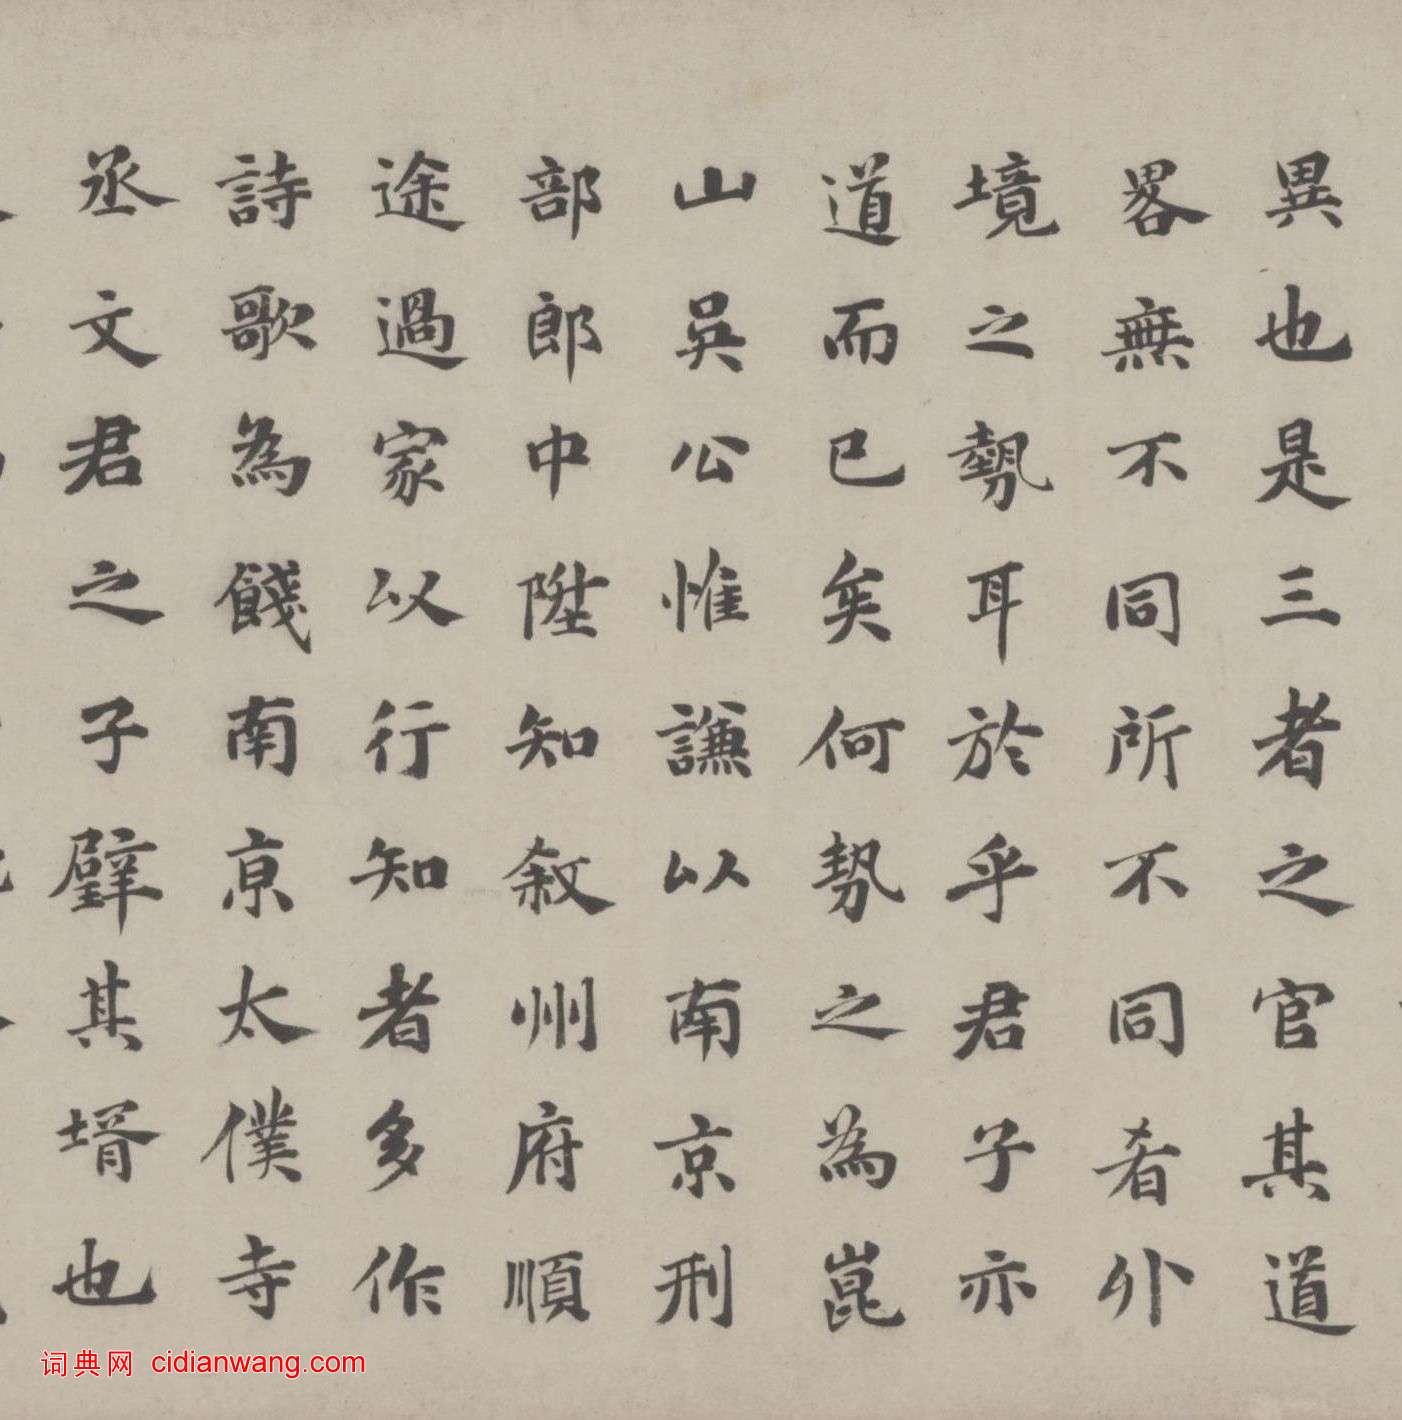 異也是三者之官其道
畧無不同所不同者外
境之勢耳於乎君子亦
道而已矣何勢之為崑
山吳公惟謙以南京刑
部郎中陞知敘州府順
途過家以行知者多作
詩歌為餞南京太僕寺
丞文君之子璧其壻也
词典网 cidianwang.com